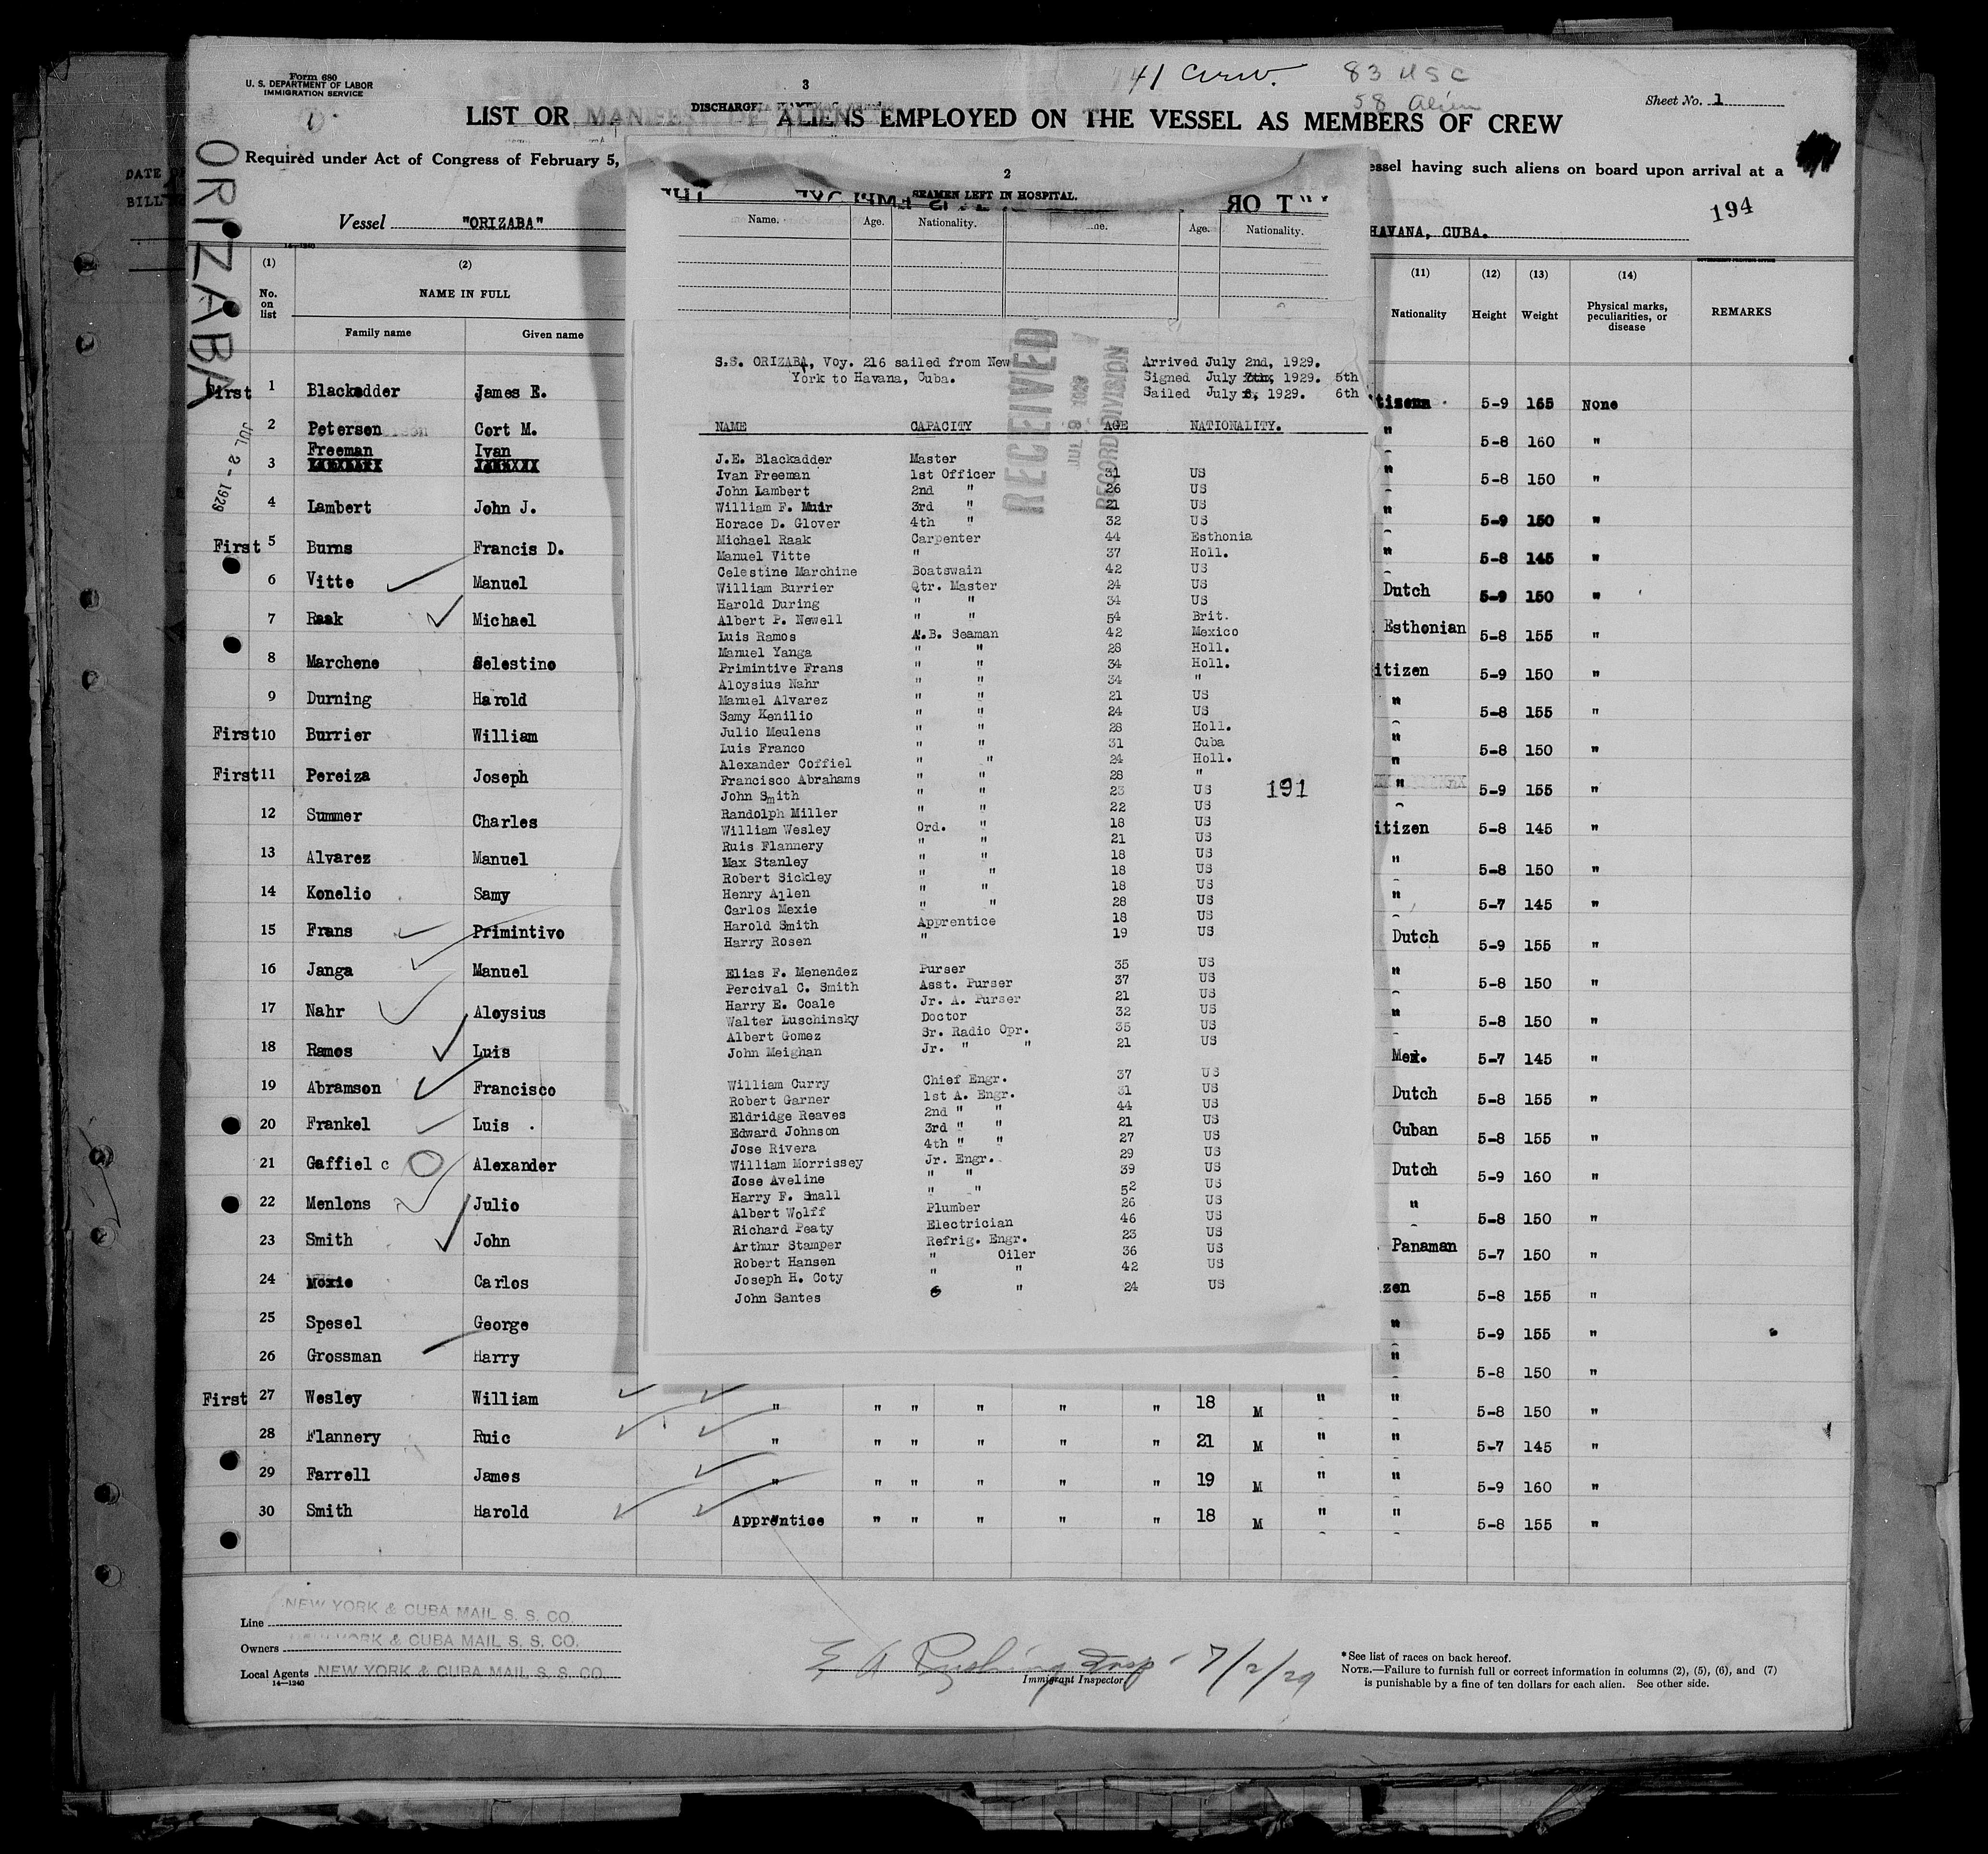 Form 680
U. S. DEPARTMENT OF LABOR
IMMIGRATION SERVICE
3
DISCHARGE
41 Crew.
83 USC
58 Alien
Sheet No. 1
LIST OR MANIFEST OF ALIENS EMPLOYED ON THE VESSEL AS MEMBERS OF CREW
Required under Act of Congress of February 5,
essel having such aliens on board upon arrival at a
194
ORIZABA
DATE
BILL
Vessel "ORIZABA"
HAVANA, CUBA.
JUL 2 - 1929
(1) (2) (11) (12) (13) (14)
No. on list NAME IN FULL Nationality Height Weight Physical marks, peculiarities, or disease REMARKS
Family name Given name
First 1 Blackadder James E. 5-9 165 None
2 Petersen Cort M. " 5-8 160 "
3 Freeman Ivan " 5-8 150 "
4 Lambert John J. " 5-9 150 "
First 5 Burns Francis D. " 5-8 145 "
6 Vitte Manuel Dutch 5-9 150 "
7 Raak Michael Esthonian 5-8 155 "
8 Marchene Selestino itizen 5-9 150 "
9 Durning Harold " 5-8 155 "
First 10 Burrier William " 5-8 150 "
First 11 Pereiza Joseph " 5-9 155 "
12 Summer Charles itizen 5-8 145 "
13 Alvarez Manuel " 5-8 150 "
14 Konelio Samy " 5-7 145 "
15 Frans Primintivo Dutch 5-9 155 "
16 Janga Manuel " 5-8 150 "
17 Nahr Aloysius " 5-8 150 "
18 Ramos Luis Mex. 5-7 145 "
19 Abramson Francisco Dutch 5-8 155 "
20 Frankel Luis Cuban 5-8 155 "
21 Gaffiel c Alexander Dutch 5-9 160 "
22 Menlons Julio " 5-8 150 "
23 Smith John Panaman 5-7 150 "
24 Moxie Carlos zen 5-8 155 "
25 Spesel George " 5-9 155 "
26 Grossman Harry " 5-8 150 "
First 27 Wesley William " " " " " " 18 M " " 5-8 150 "
28 Flannery Ruic " " " " " " 21 M " " 5-7 145 "
29 Farrell James " " " " " " 19 M " " 5-9 160 "
30 Smith Harold Apprentice " " " " " 18 M " " 5-8 155 "
2
SEAMEN LEFT IN HOSPITAL.
Name. Age. Nationality. Age. Nationality.
S.S. ORIZABA, Voy. 216 sailed from New
York to Havana, Cuba.
Arrived July 2nd, 1929.
Signed July 7th, 1929. 5th
Sailed July 8, 1929. 6th
RECEIVED
RECORD DIVISION
NAME CAPACITY AGE NATIONALITY.
J.E. Blackadder Master
Ivan Freeman 1st Officer 31 US
John Lambert 2nd " 26 US
William F. Muir 3rd " 21 US
Horace D. Glover 4th " 32 US
Michael Raak Carpenter 44 Esthonia
Manuel Vitte " 37 Holl.
Celestine Marchine Boatswain 42 US
William Burrier Qtr. Master 24 US
Harold During " " 34 US
Albert P. Newell " " 54 Brit.
Luis Ramos A.B. Seaman 42 Mexico
Manuel Yanga " " 28 Holl.
Primintive Frans " " 34 Holl.
Aloysius Nahr " " 34 "
Manuel Alvarez " " 21 US
Samy Kenilio " " 24 US
Julio Meulens " " 28 Holl.
Luis Franco " " 31 Cuba
Alexander Coffiel " " 24 Holl.
Francisco Abrahams " " 28 "
John Smith " " 23 US
191
Randolph Miller " " 22 US
William Wesley Ord. " 18 US
Ruis Flannery " " 21 US
Max Stanley " " 18 US
Robert Sickley " " 18 US
Henry Allen " " 18 US
Carlos Mexie " " 28 US
Harold Smith Apprentice 18 US
Harry Rosen " 19 US
Elias F. Menendez Purser 35 US
Percival C. Smith Asst. Purser 37 US
Harry E. Coale Jr. A. Purser 21 US
Walter Luschinsky Doctor 32 US
Albert Gomez Sr. Radio Opr. 35 US
John Meighan Jr. " " 21 US
William Curry Chief Engr. 37 US
Robert Garner 1st A. Engr. 31 US
Eldridge Reaves 2nd " " 44 US
Edward Johnson 3rd " " 21 US
Jose Rivera 4th " " 27 US
William Morrissey Jr. Engr. 29 US
Jose Aveline " " 39 US
Harry F. Small " " 52 US
Albert Wolff Plumber 26 US
Richard Peaty Electrician 46 US
Arthur Stamper Refrig. Engr. 23 US
Robert Hansen " Oiler 36 US
Joseph H. Coty " " 42 US
John Santes " 24 US
Line NEW YORK & CUBA MAIL S. S. CO.
Owners NEW YORK & CUBA MAIL S. S. CO.
Local Agents NEW YORK & CUBA MAIL S. S. CO.
14—1240
E A Rushing Insp - 7/2/29
Immigrant Inspector
* See list of races on back hereof.
NOTE.—Failure to furnish full or correct information in columns (2), (5), (6), and (7)
is punishable by a fine of ten dollars for each alien. See other side.